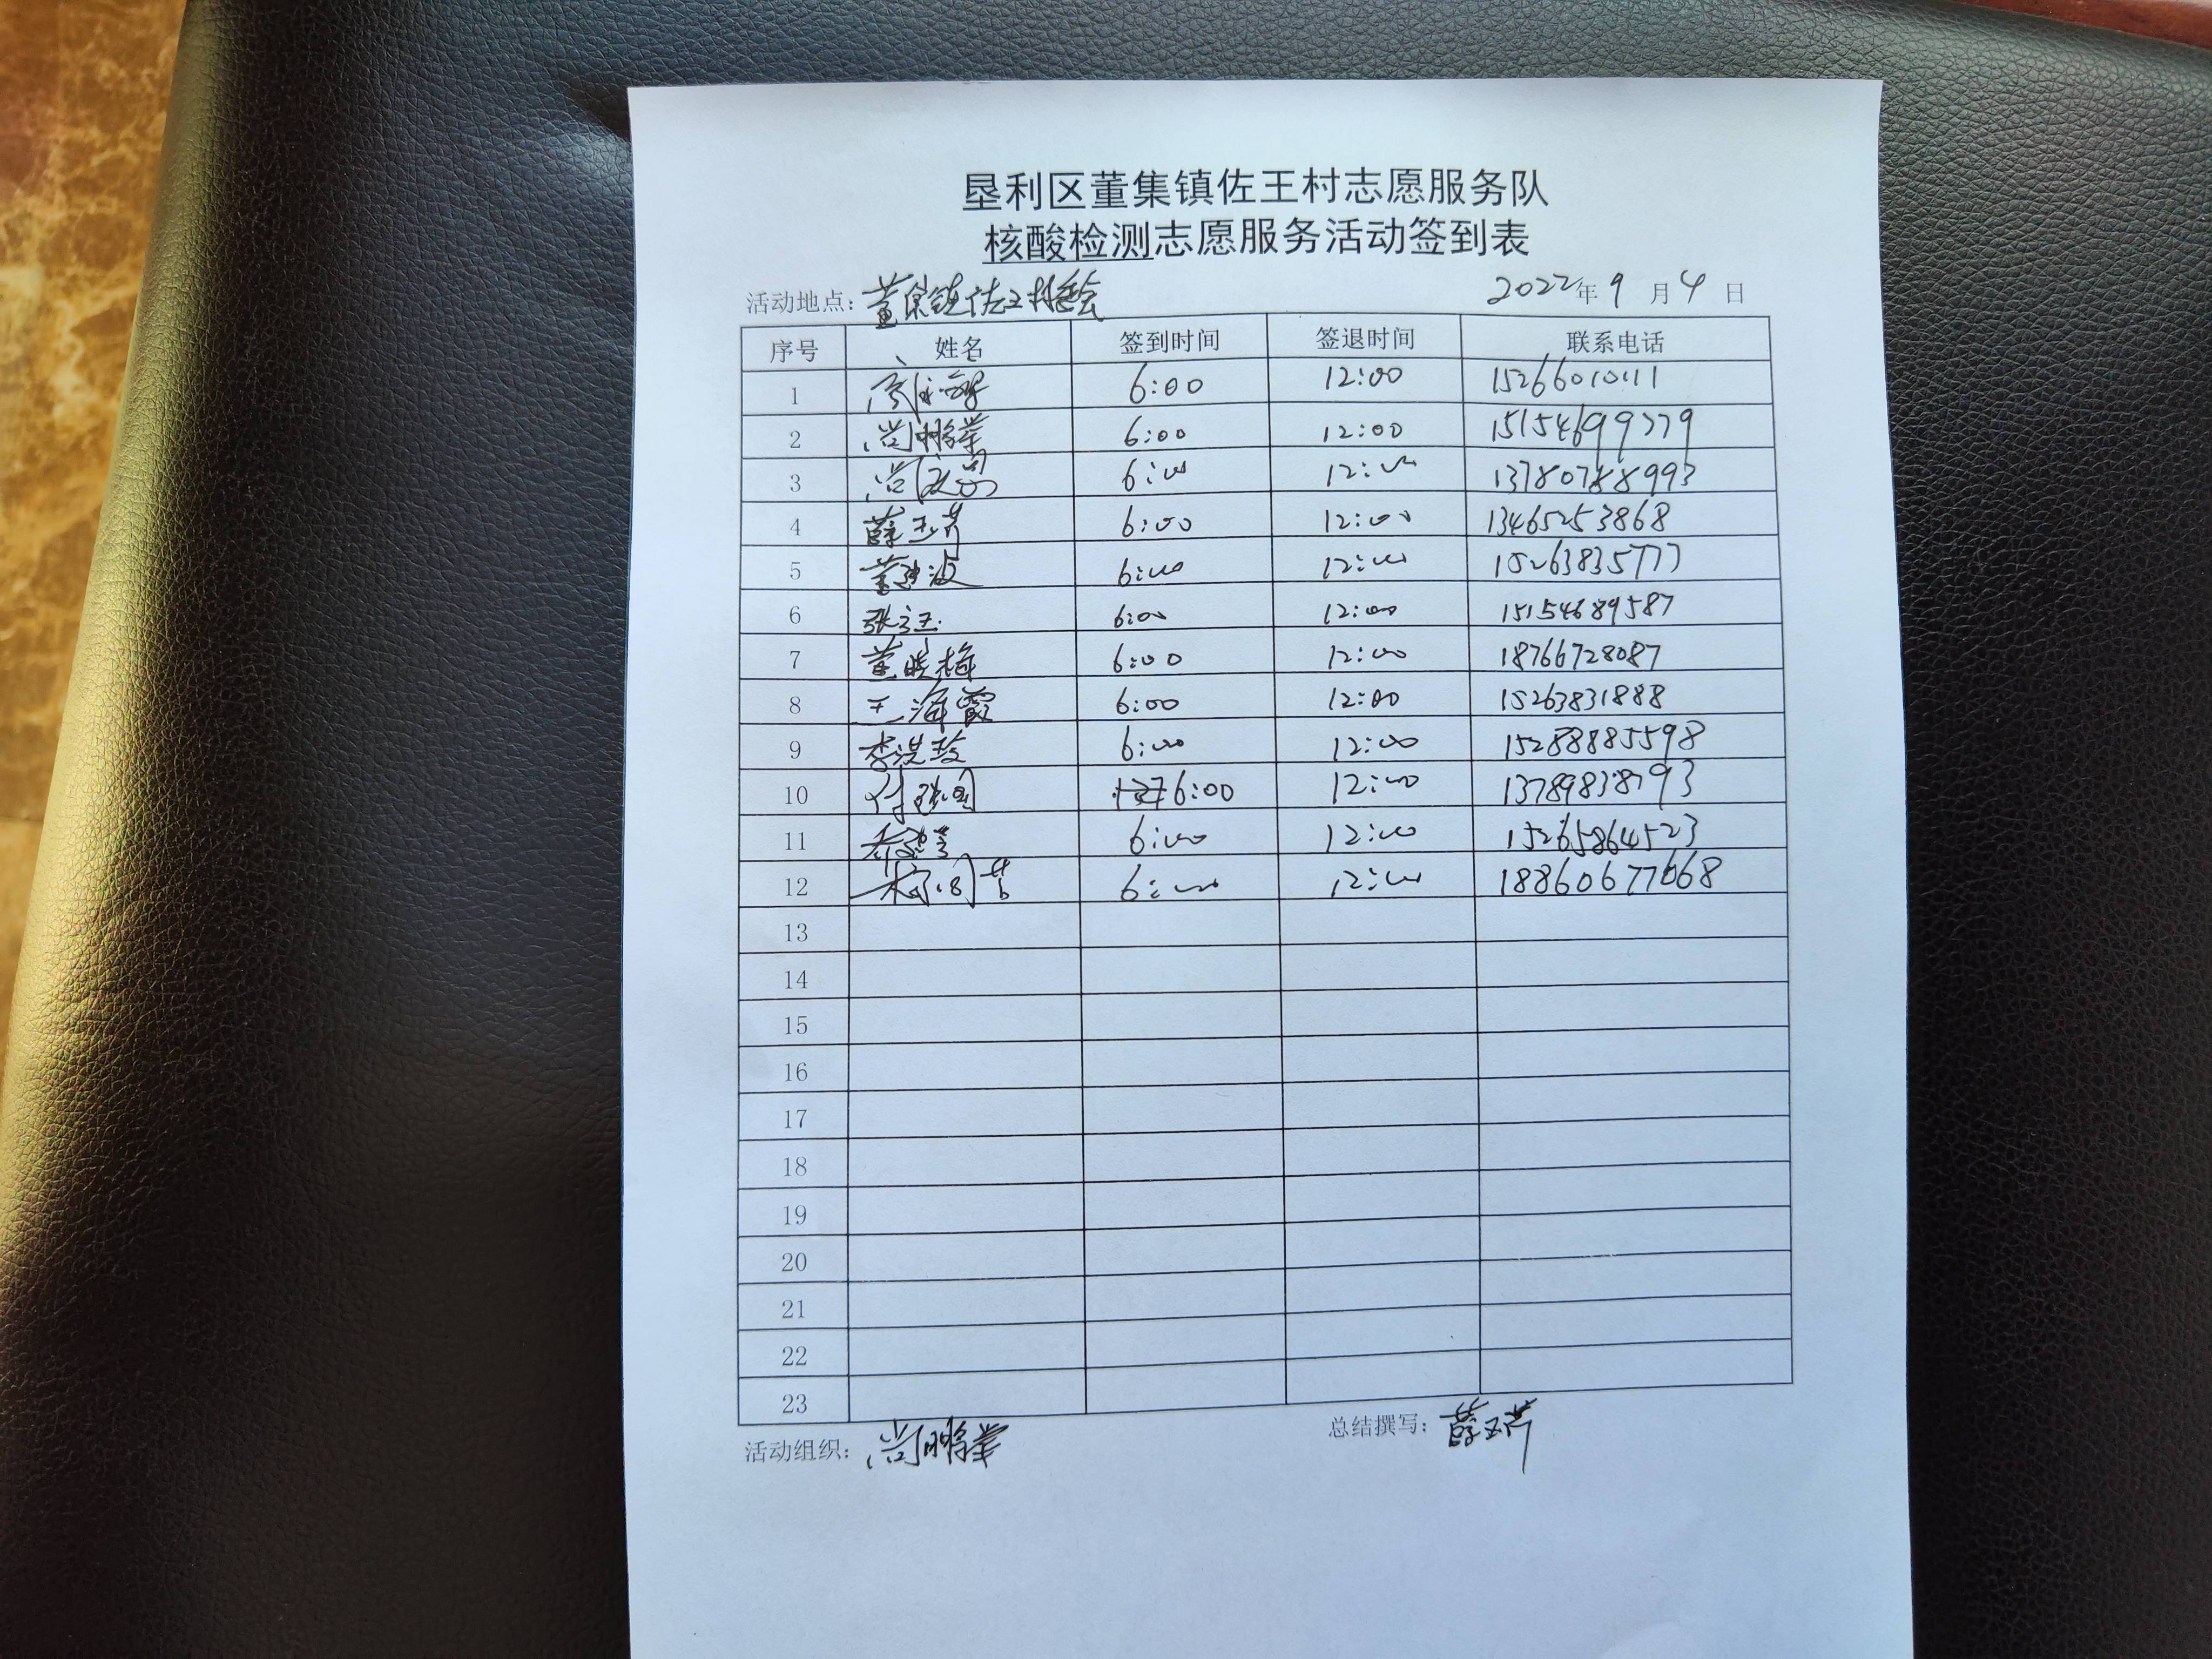 垦利区董集镇佐王村志愿服务队
核酸检测志愿服务活动签到表
活动地点：董集镇佐王村委会 2022年9月4日
序号 姓名 签到时间 签退时间 联系电话
1 6:00 12:00 15266010111
2 尚鹏举 6:00 12:00 15154699779
3 尚 6:00 12:00 13780788993
4 薛玉芹 6:00 12:00 13465253868
5 董 波 6:00 12:00 15263835777
6 张 6:00 12:00 15154689587
7 董晓梅 6:00 12:00 18766728087
8 王海霞 6:00 12:00 15263831888
9 李洪玫 6:00 12:00 15288885598
10 付 6:00 12:00 13789838793
11 6:00 12:00 15265864523
12 6:00 12:00 18860677668
13
14
15
16
17
18
19
20
21
22
23
活动组织：尚鹏举 总结撰写：薛玉芹